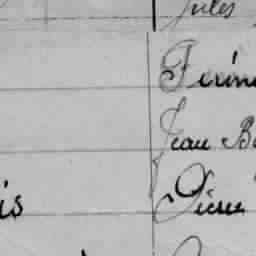 Jules
Firmi
Jean Ba
is Pierre